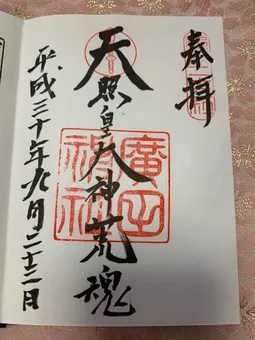 奉拝
天照皇大神荒魂
廣田神社
平成三十年九月二十二日